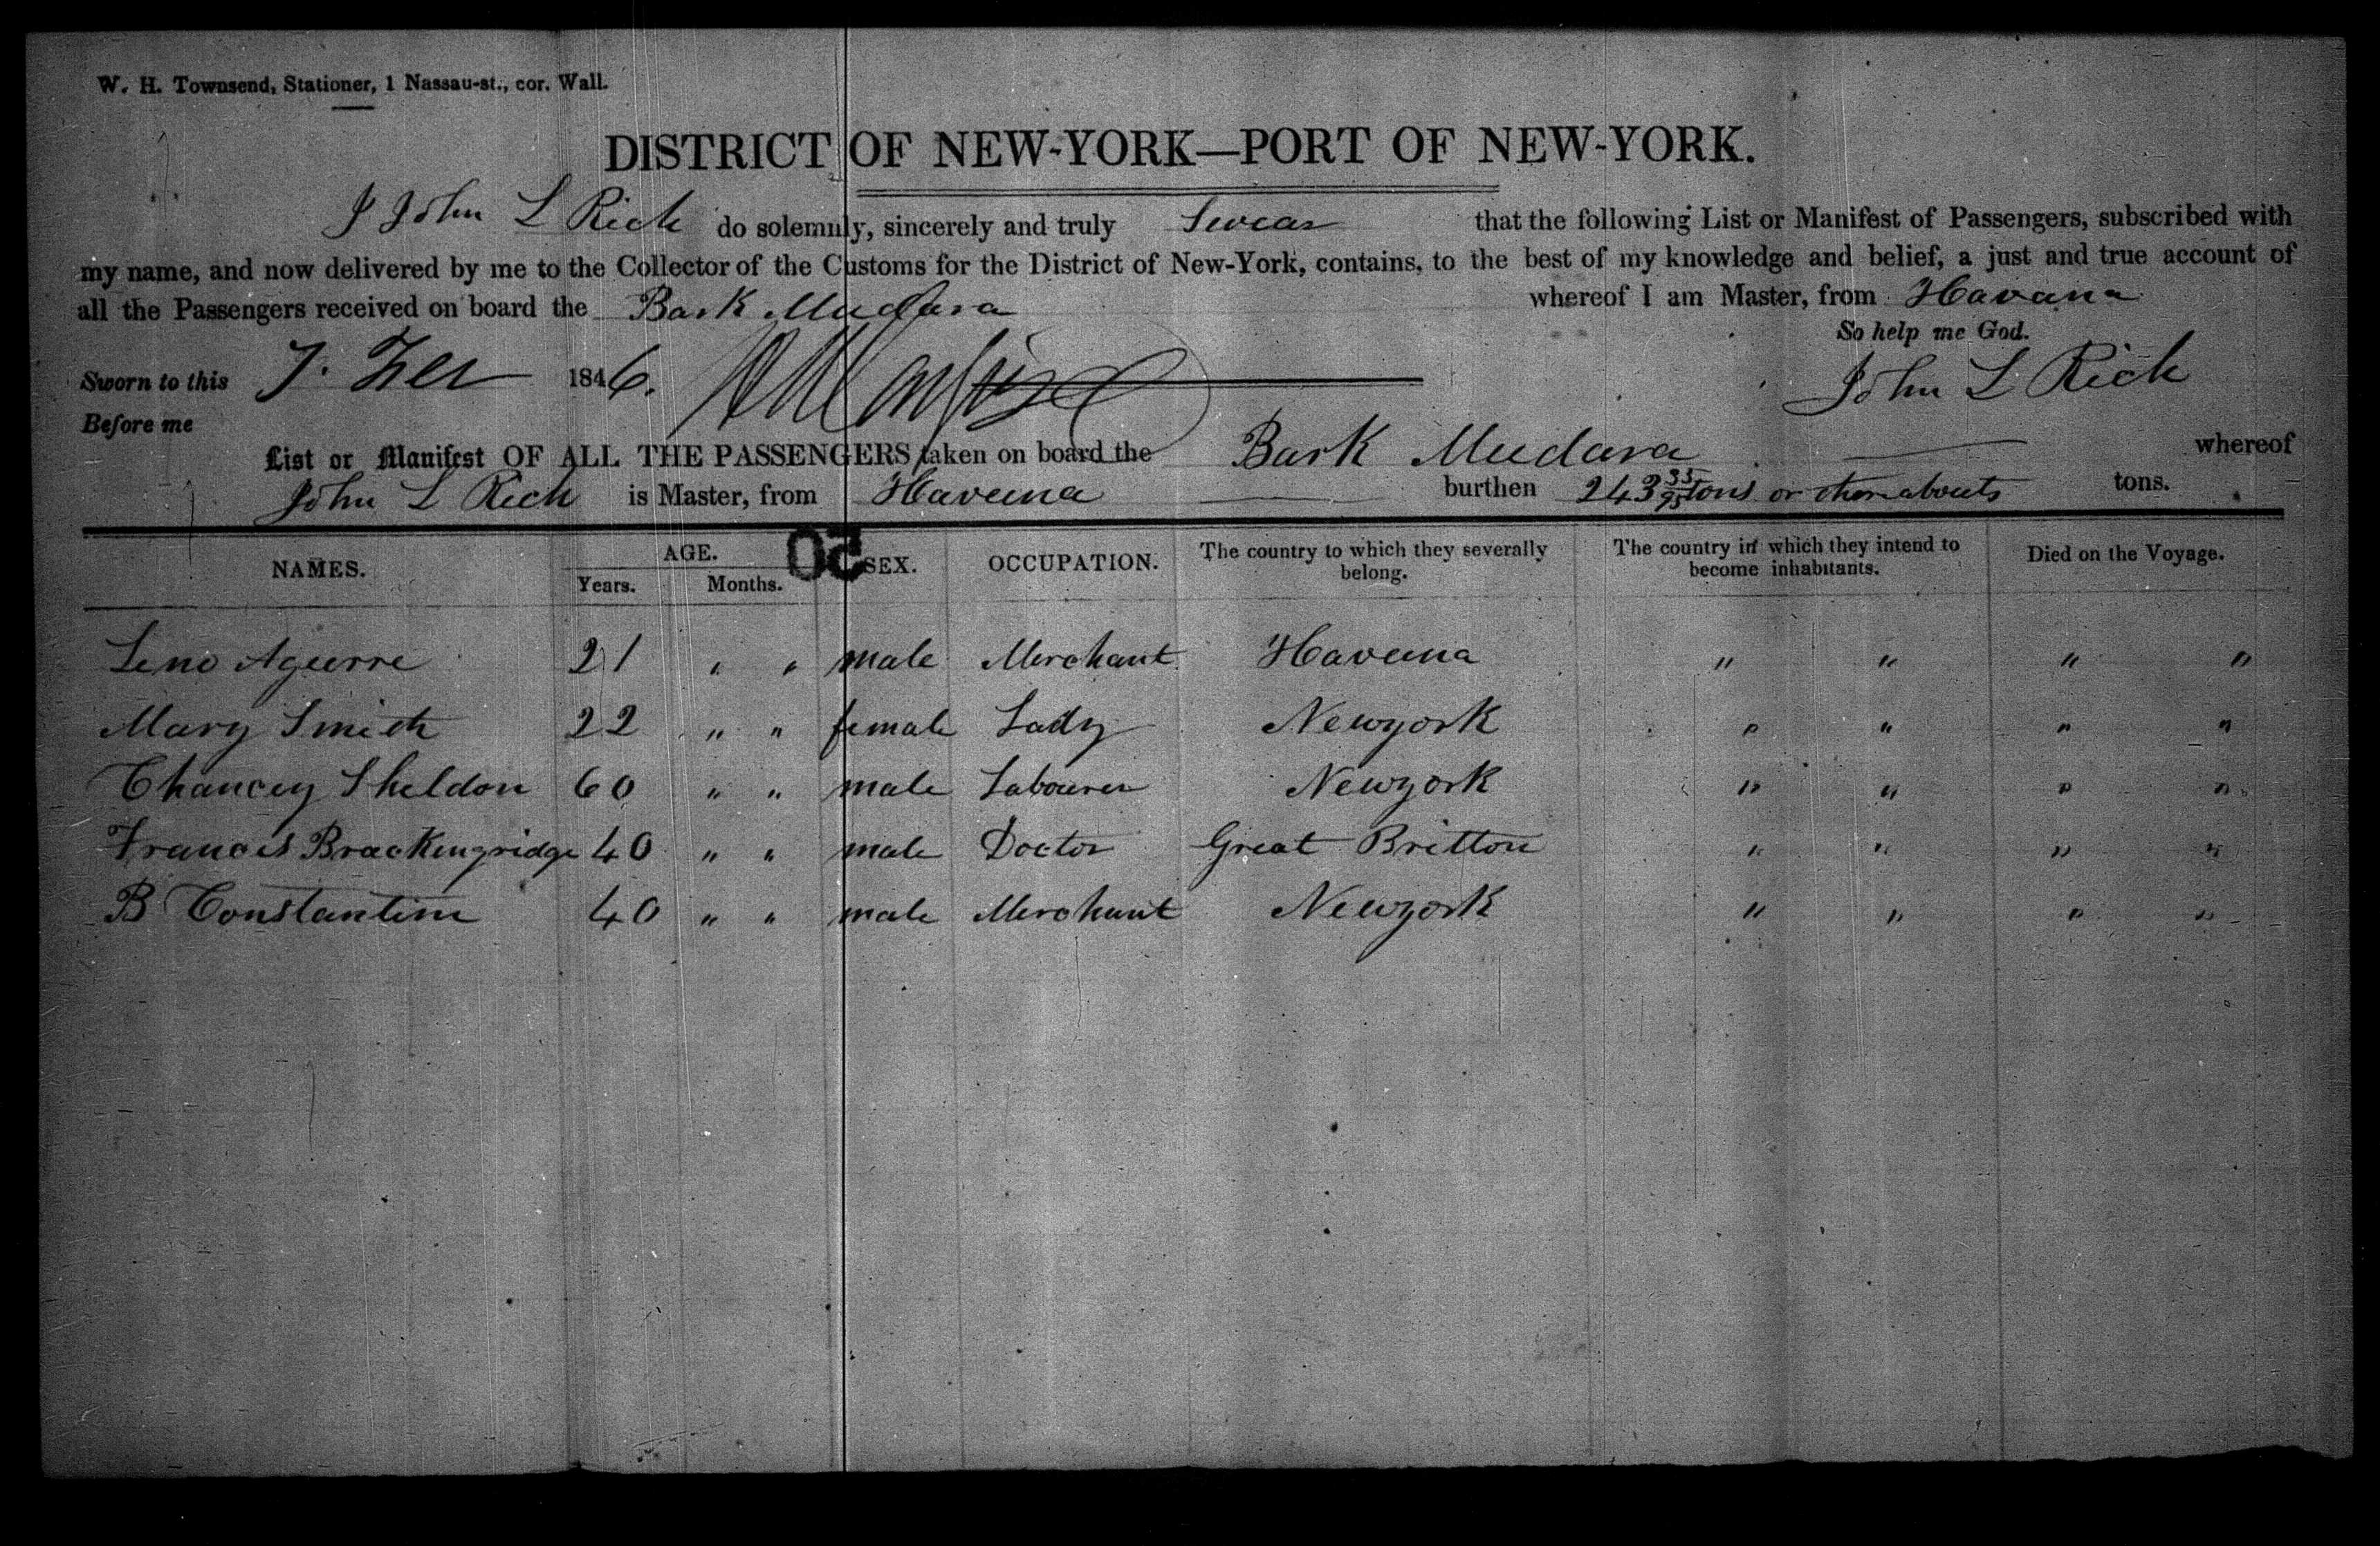 W. H. Townsend, Stationer, 1 Nassau-st., cor. Wall.
DISTRICT OF NEW-YORK—PORT OF NEW-YORK.
I John L Rich do solemnly, sincerely and truly Swear that the following List or Manifest of Passengers, subscribed with
my name, and now delivered by me to the Collector of the Customs for the District of New-York, contains, to the best of my knowledge and belief, a just and true account of
all the Passengers received on board the Bark Mudara whereof I am Master, from Havana
So help me God.
Sworn to this 7. 1846. John L Rich
Before me
List or Manifest OF ALL THE PASSENGERS taken on board the Bark Mudara whereof
John L Rich is Master, from Havana burthen 243 33/95 tons or thereabouts tons.
50
NAMES. AGE. SEX. OCCUPATION. The country to which they severally belong. The country in which they intend to become inhabitants. Died on the Voyage.
Years. Months.
Leno Aguerre 21 " " male Merchant Havana " " " "
Mary Smith 22 " " female Lady Newyork " " " "
Chancey Sheldon 60 " " male Labourer Newyork " " " "
Francis Brackengridge 40 " " male Doctor Great Britton " " " "
B Constantine 40 " " male Merchant Newyork " " " "